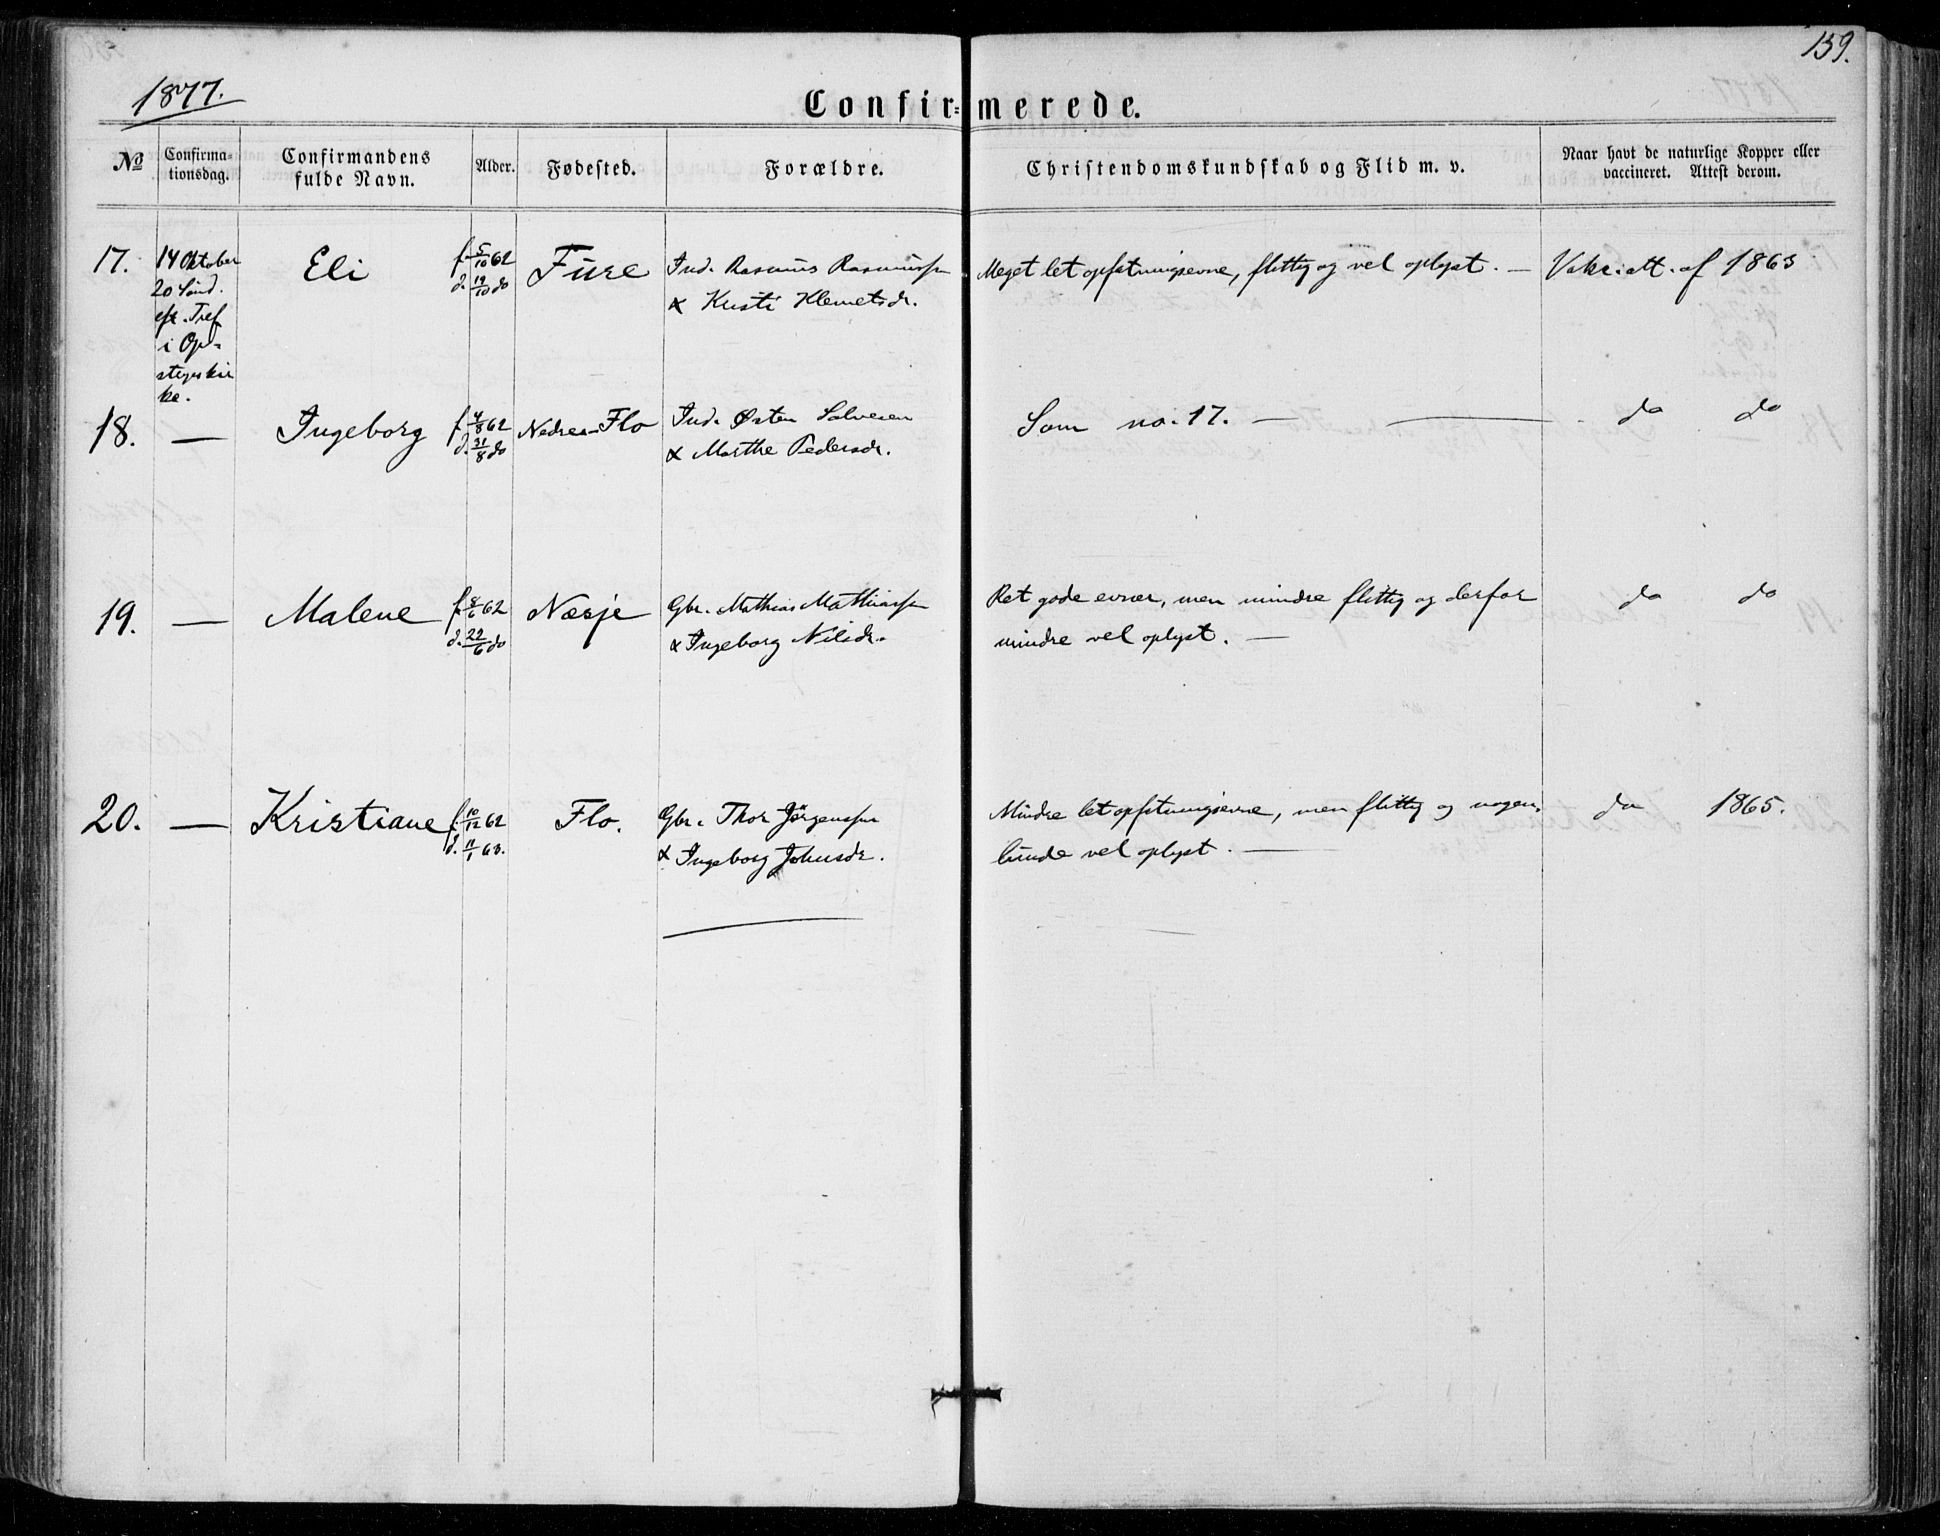 159.
1877.
Confir=merede.
No Confirma-tionsdag. Confirmandens fulde Navn. Alder. Fødested. Forældre. Christendomskundskab og Flid m. v. Naar havt de naturlige Kopper eller vaccineret. Attest derom.
17. 14 Oktober Eli f. 5/10 62 Fure Ind. Rasmus Rasmussen Meget let opfatningsevne, flittig og vel oplyst. — Vakc. att. af 1863
20 Sønd. d. 19/10 do & Kristi Klemetsdr.
eft. Tref
i Op-
strynskir
ke.
18. — Ingeborg f. 4/8 62 Nedre-Flo Ind. Østen Salvesen Som no. 17. — — do do
d. 31/8 do & Marthe Pedersdr.
19. — Malene f. 8/6 62 Nesje Gbr. Mathias Mathiassen Ret gode evner, men mindre flittig og derfor do do
d. 22/6 do & Ingeborg Nilsdr. mindre vel oplyst. —
20. — Kristiane f. 10/12 62 Flo. Gbr. Thor Jørgenssen Mindre let opfatningsevne, men flittig og nogen- do 1865.
d. 11/1 63. & Ingeborg Johnsdr. lunde vel oplyst. —